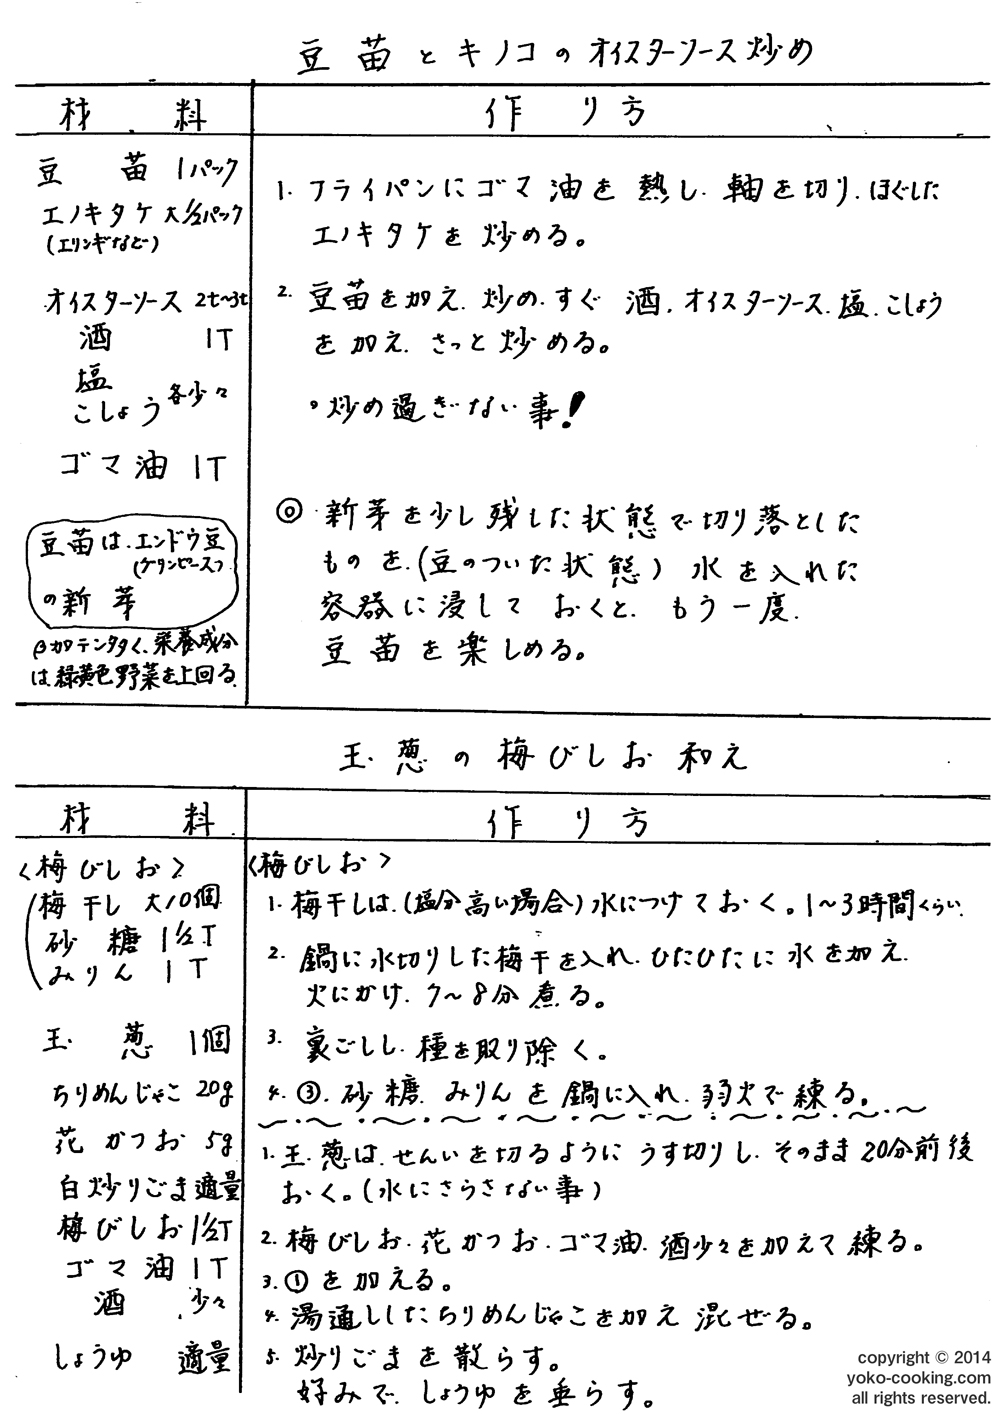 豆苗とキノコのオイスターソース炒め
材料
豆苗 1パック
エノキタケ 大1/2パック
(エリンギなど)
オイスターソース 2t〜3t
酒 1T
塩
こしょう 各少々
ゴマ油 1T
豆苗は、エンドウ豆
(グリンピース)
の新芽
βカロテン多く、栄養成分
は、緑黄色野菜を上回る。
作り方
1. フライパンにゴマ油を熱し、軸を切り、ほぐした
エノキタケを炒める。
2. 豆苗を加え、炒め、すぐ酒、オイスターソース、塩、こしょう
を加え、さっと炒める。
。炒め過ぎない事!
◎ 新芽を少し残した状態で切り落とした
ものを、(豆のついた状態)水を入れた
容器に浸しておくと、もう一度、
豆苗を楽しめる。
玉葱の梅びしお和え
材料
〈梅びしお〉
梅干し 大10個
砂糖 1 1/2T
みりん 1T
玉葱 1個
ちりめんじゃこ 20g
花かつお 5g
白炒りごま 適量
梅びしお 1 1/2T
ゴマ油 1T
酒 少々
しょうゆ 適量
作り方
〈梅びしお〉
1. 梅干しは、(塩分高い場合)水につけておく。1〜3時間くらい
2. 鍋に水切りした梅干を入れ、ひたひたに水を加え、
火にかけ、7〜8分煮る。
3. 裏ごしし、種を取り除く。
4. ③、砂糖、みりんを鍋に入れ、弱火で練る。
1. 玉葱は、せんいを切るようにうす切りし、そのまま20分前後
おく。(水にさらさない事)
2. 梅びしお、花かつお、ゴマ油、酒少々を加えて練る。
3. ①を加える。
4. 湯通ししたちりめんじゃこを加え混ぜる。
5. 炒りごまを散らす。
好みで、しょうゆを垂らす。
copyright © 2014
yoko-cooking.com
all rights reserved.